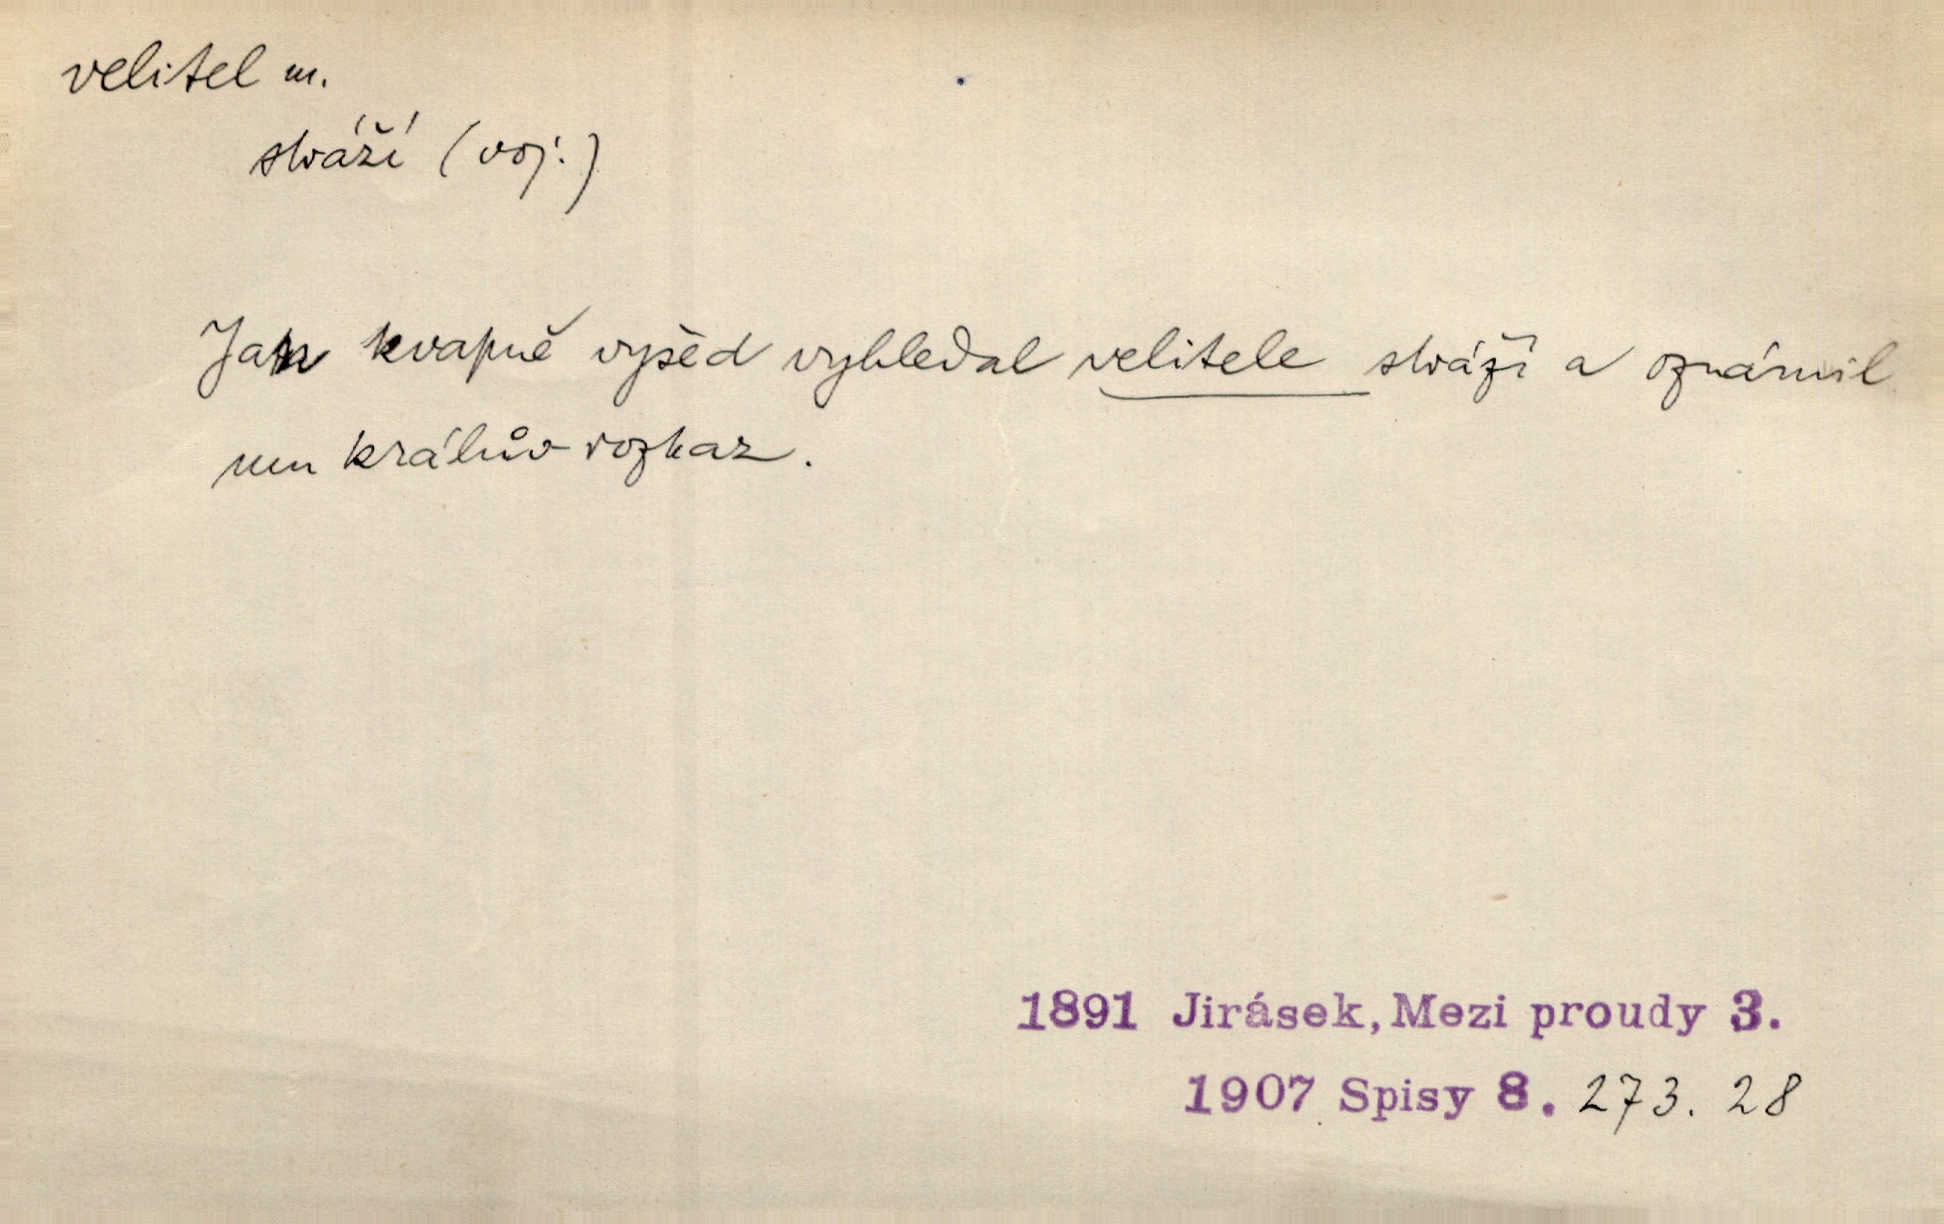 velitel m.
stráží (voj.)
Jan kvapně vyšed vyhledal velitele stráží a oznámil
mu králův rozkaz.
1891 Jirásek, Mezi proudy 3.
1907 Spisy 8. 273. 28